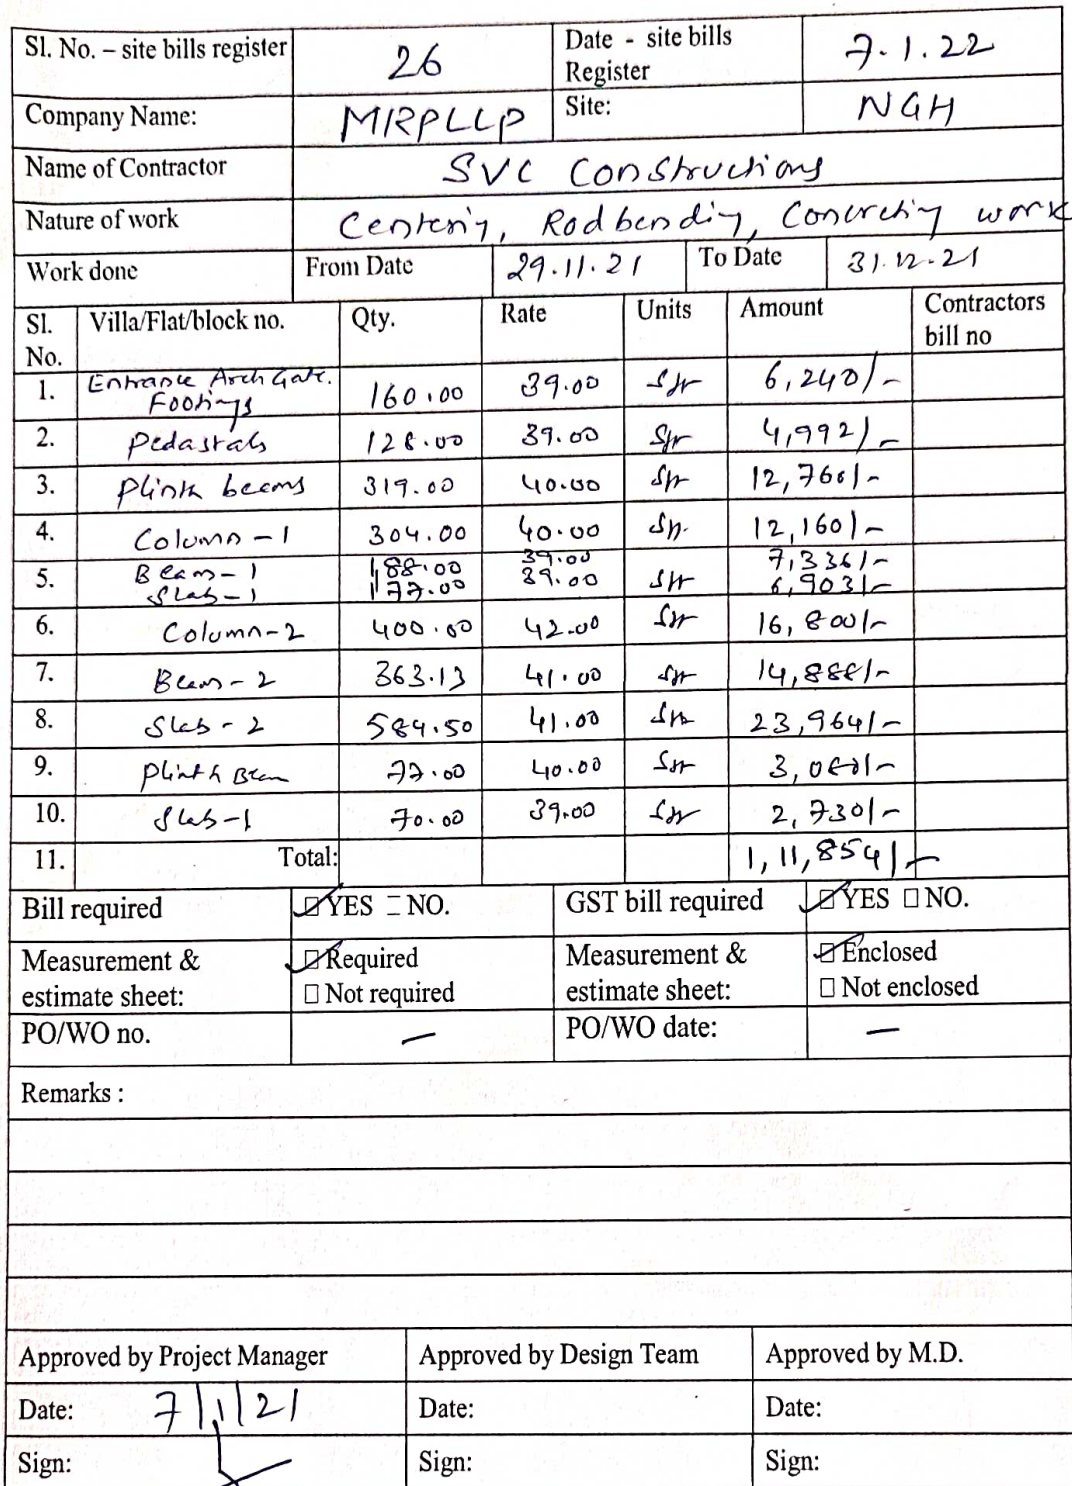 Sl. No. – site bills register 26 Date - site bills Register 7.1.22
Company Name: MRPLLP Site: NGH
Name of Contractor SVC Constructions
Nature of work Centering, Rodbending, Concreting work
Work done From Date 29.11.21 To Date 31.12.21
Sl. No. Villa/Flat/block no. Qty. Rate Units Amount Contractors bill no
1. Entrance Arch Gate. Footings 160.00 39.00 Sft 6,240/-
2. Pedastals 128.00 39.00 Sft 4,992/-
3. Plinth beams 319.00 40.00 Sft 12,760/-
4. Column-1 304.00 40.00 Sft 12,160/-
5. Beam-1 188.00 39.00 7,336/-
Slab-1 177.00 39.00 Sft 6,903/-
6. Column-2 400.00 42.00 Sft 16,800/-
7. Beam-2 363.13 41.00 Sft 14,888/-
8. Slab-2 584.50 41.00 Sft 23,964/-
9. Plinth Beam 77.00 40.00 Sft 3,080/-
10. Slab-1 70.00 39.00 Sft 2,730/-
11. Total: 1,11,854/-
Bill required ☑YES □NO. GST bill required ☑YES □NO.
Measurement & estimate sheet: ☑Required □Not required Measurement & estimate sheet: ☑Enclosed □Not enclosed
PO/WO no. – PO/WO date: –
Remarks :
Approved by Project Manager Approved by Design Team Approved by M.D.
Date: 7/1/21 Date: Date:
Sign: Sign: Sign: